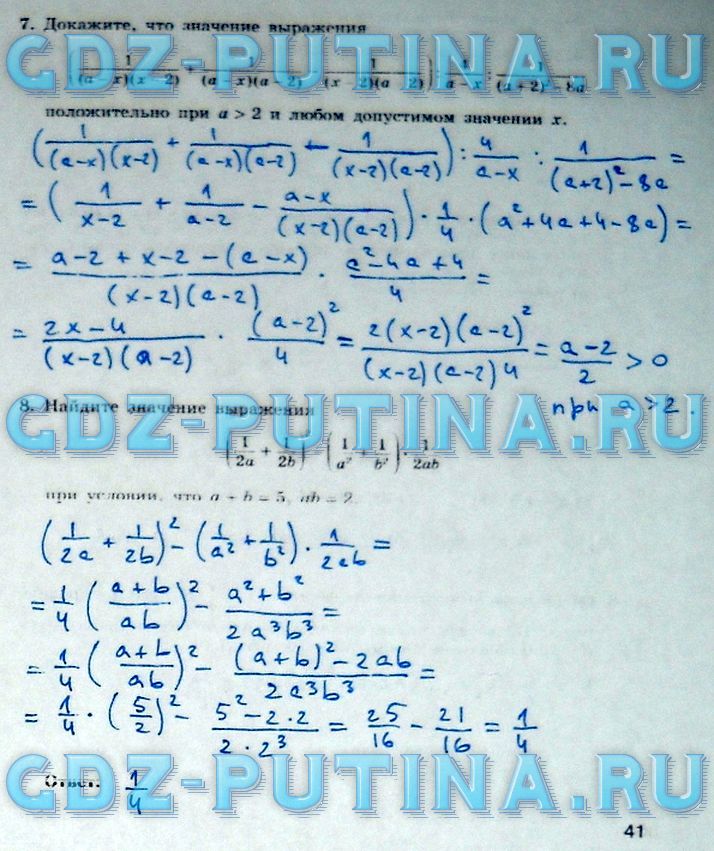 7. Докажите, что значение выражения
GDZ-PUTINA.RU
1/((a − x)(x − 2)) + 1/((a − x)(a − 2)) 1/((x − 2)(a − 2)) : 4/(a − x) : 1/((a + 2)² − 8a)
положительно при a > 2 и любом допустимом значении x.
(1/((a-x)(x-2)) + 1/((a-x)(a-2)) - 1/((x-2)(a-2))) : 4/(a-x) : 1/((a+2)²-8a) =
= (1/(x-2) + 1/(a-2) - (a-x)/((x-2)(a-2))) · 1/4 · (a²+4a+4-8a) =
= (a-2+x-2-(a-x))/((x-2)(a-2)) · (a²-4a+4)/4 =
= (2x-4)/((x-2)(a-2)) · (a-2)²/4 = (2(x-2)(a-2)²)/((x-2)(a-2)4) = (a-2)/2 > 0
при a > 2.
8. Найдите значение выражения
GDZ-PUTINA.RU
(1/2a + 1/2b) (1/a² + 1/b²) · 1/2ab
при условии, что a + b = 5, ab = 2.
(1/2a + 1/2b)² - (1/a² + 1/b²) · 1/2ab =
= 1/4 ((a+b)/ab)² - (a²+b²)/2a³b³ =
= 1/4 ((a+b)/ab)² - ((a+b)²-2ab)/2a³b³ =
GDZ-PUTINA.RU
= 1/4 · (5/2)² - (5²-2·2)/(2·2³) = 25/16 - 21/16 = 1/4
GDZ-PUTINA.RU
Ответ: 1/4
41